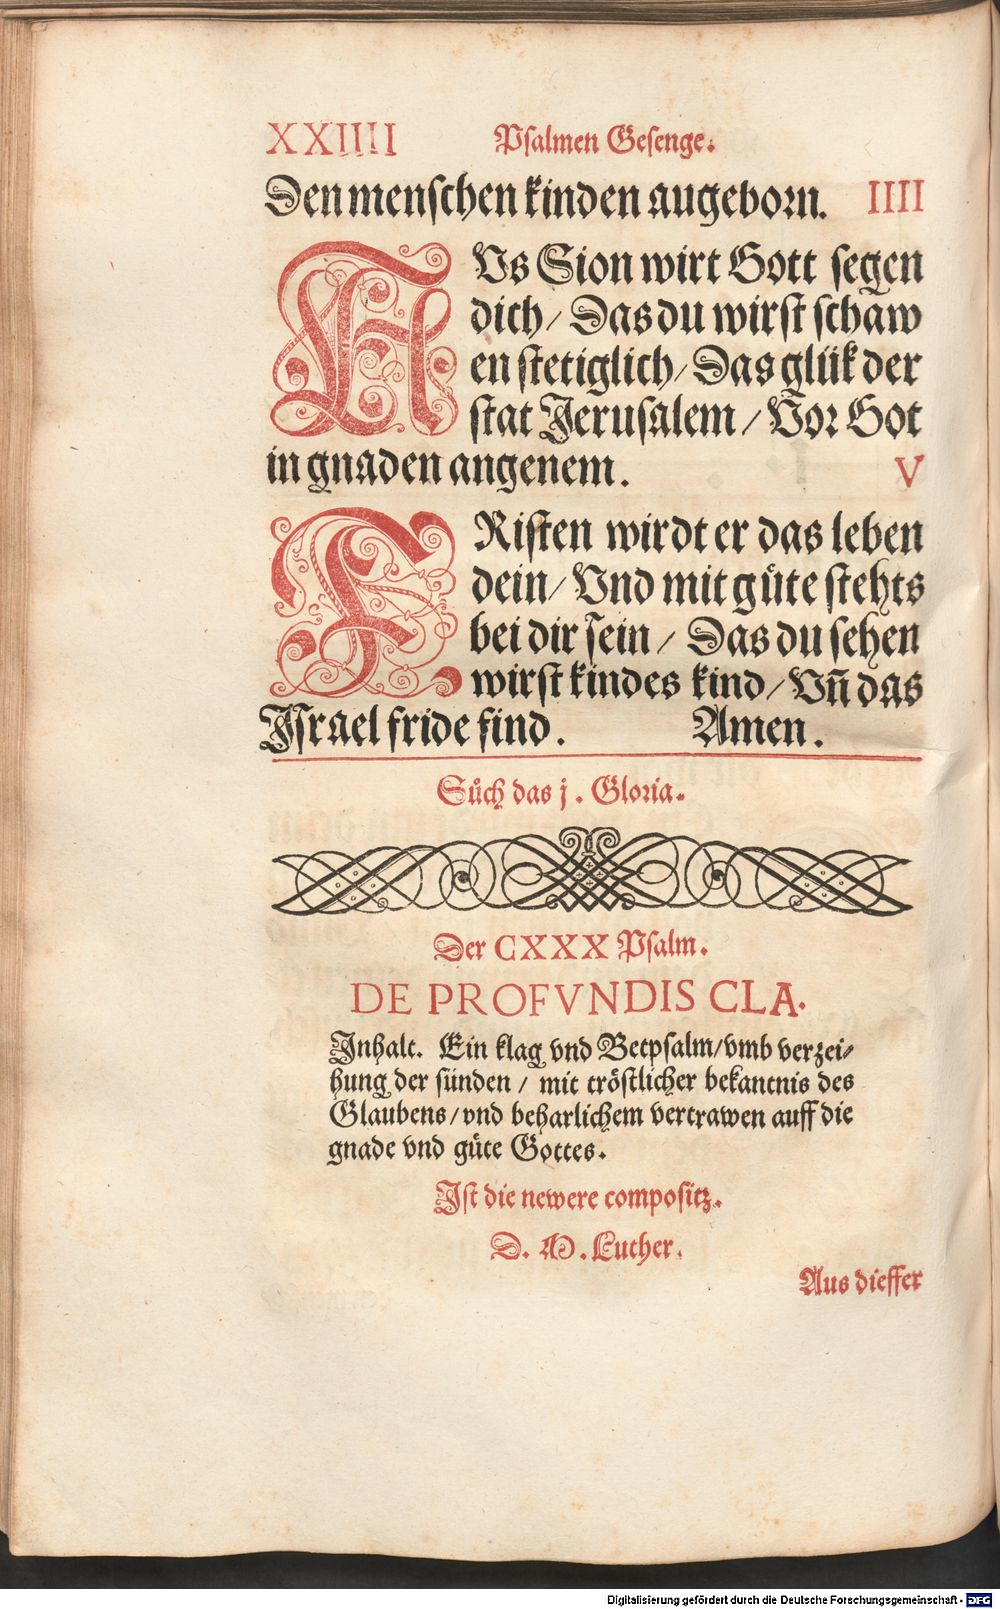 XXIIII Psalmen Gesenge.
Den menschen kinden augeborn. IIII
AVs Sion wirt Gott segen
dich / Das du wirst schaw
en stetiglich / Das glük der
stat Jerusalem / Vor Got
in gnaden angenem. V
FRisten wirdt er das leben
dein / Vnd mit gůte stehts
bei dir sein / Das du sehen
wirst kindes kind / Vñ das
Israel fride find. Amen.
Sůch das j. Gloria.
Der CXXX Psalm.
DE PROFVNDIS CLA.
Inhalt. Ein klag vnd Betpsalm / vmb verzei⸗
hung der sünden / mit tröstlicher bekantnis des
Glaubens / vnd beharlichem vertrawen auff die
gnade vnd gůte Gottes.
Ist die newere compositz.
D. M. Luther.
Aus dieffer
Digitalisierung gefördert durch die Deutsche Forschungsgemeinschaft - DFG